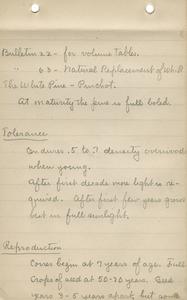 Bulletin 22 - for volume Tables.
" 63 - Natural Replacement of Wh. P.
The White Pine - Pinchot.
At maturity the pine is full boled.
Tolerance
Endures .5 to .7 density overwood
when young.
After first decade more light is re-
quired. After first few years grows
best in full sunlight.
Reproduction
Cones begin at 7 years of age. Full
Crops of seed at 50-70 years. Seed
years 3-5 years apart, but some